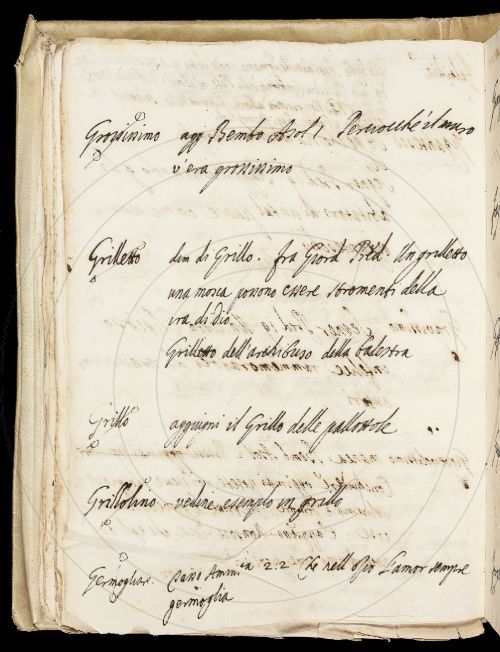 Grossissimo agg Bembo Asol 1 Perciocché il muro
v'era grossissimo
Grilletto dim di Grillo. fra Giord Pred. Un grilletto
una mosca possono essere stromenti della
ira di dio.
Grilletto dell'archibuso della balestra
Grillo aggiugni il Grillo delle pallottole
Grillolino vedine esemplo in grillo
Germogliare. Tasso Amin.ta 2:2 Che nell' Amor sempre
germoglia